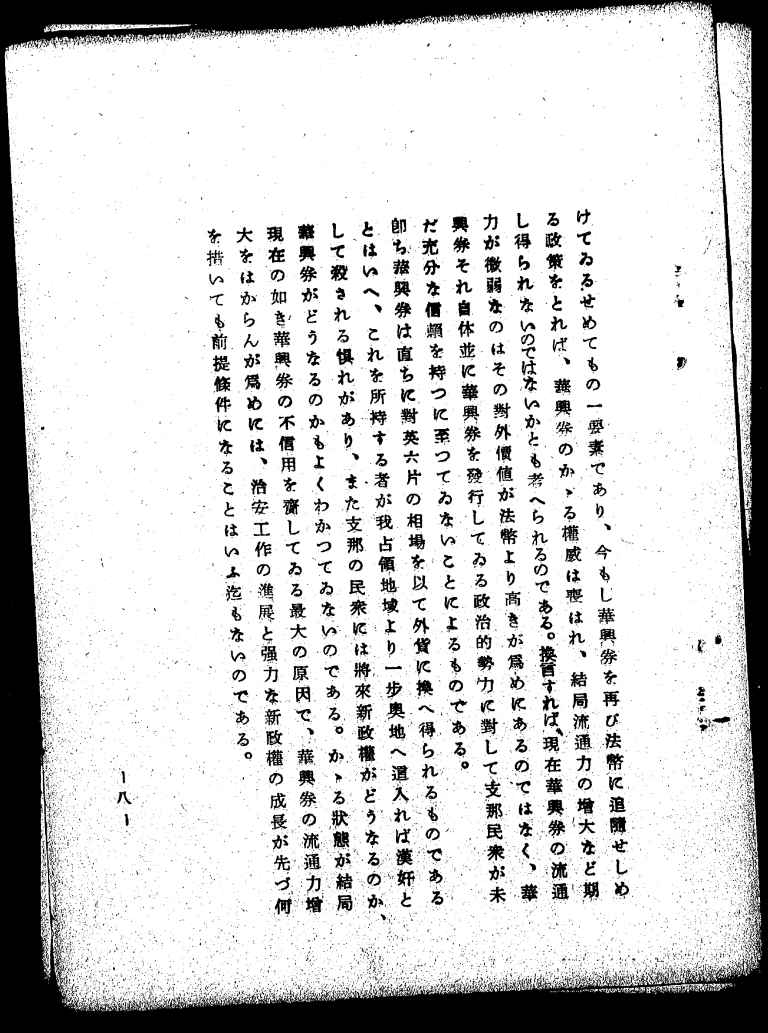 けてゐるせめてもの一要素であり、今もし華興券を再び法幣に追隨せしめ
る政策をとれば、華興券のかゝる權威は喪はれ、結局流通力の增大など期
し得られないのではないかとも考へられるのである。換言すれば、現在華興券の流通
力が微弱なのはその對外價値が法幣より高きが爲めにあるのではなく、華
興券それ自体並に華興券を發行してゐる政治的勢力に對して支那民衆が未
だ充分な信賴を持つに至つてゐないことによるものである。
卽ち華興券は直ちに對英六片の相場を以て外貨に換へ得られるものである
とはいへ、これを所持する者が我占領地域より一步奧地へ這入れば漢奸と
して殺される惧れがあり、また支那の民衆には將來新政權がどうなるのか、
華興券がどうなるのかもよくわかつてゐないのである。かゝる狀態が結局
現在の如き華興券の不信用を齎してゐる最大の原因で、華興券の流通力增
大をはからんが爲めには、治安工作の進展と强力な新政權の成長が先づ何
を措いても前提條件になることはいふ迄もないのである。
ー八ー